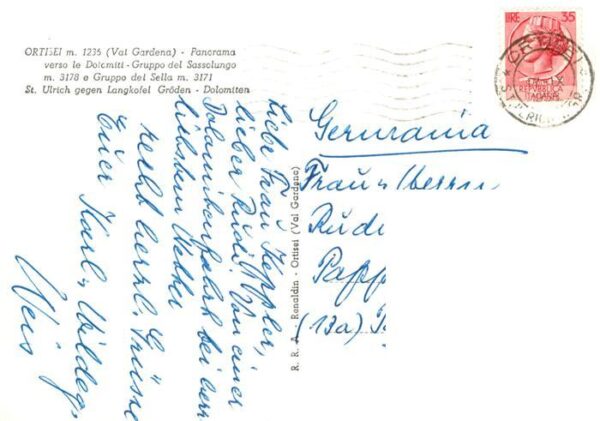 ORTISEI m. 1236 (Val Gardena) - Panorama
verso le Dolomiti - Gruppo del Sassolungo
m. 3178 e Gruppo del Sella m. 3171
St. Ulrich gegen Langkofel Gröden - Dolomiten
LIRE 35
REPVBBLICA
ITALIANA
ORTISEI
Liebe Frau Heppler,
lieber Rudi! Von einer
Dolomitenfahrt bei herr
lichstem Wetter
recht herzl. Grüsse
Euer Karl, Hildeg,
R. R. A. - Renaldin - Ortisei (Val Gardena)
Germania
Frau u. Herrn
Rude
Papp
(13a)